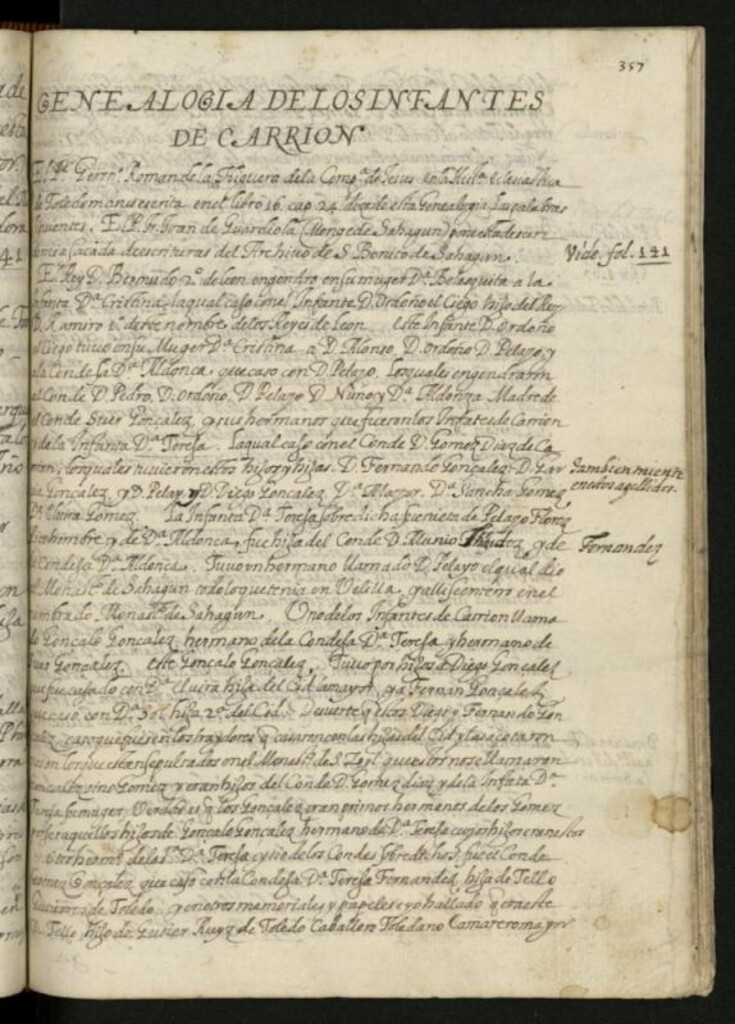 357
GENEALOGIA DELOSINFANTES
DE CARRION
El Pe. Romandela Higuera dela Comp.ª de Iesus enla Hist.ª eclesiastica
de Toledo manuescrita enel libro 16 cap 24 esta Genealogia palabras
siguientes. El P. fr. Joan de Guardiola Monge de Sahagun
sacada deescrituras del Archivo de S. Benito de Sahagun.
Vide. fol. 141
El Rey D. Bermudo 2.º de Leon engendro ensu muger D.ª Belasquita a la
Infanta D.ª Cristina, laqual caso conel Infante D. Ordoño el Ciego hijo del Rey
D. Ramiro deste nombre delos Reyes de Leon este Infante D. Ordoño
el Ciego tuvo ensu Muger D.ª Cristina a D. Alonso, D. ordoño D. Pelayo, y
ala Condesa D.ª Aldonça, que caso con D. Pelayo. Losquales engendraron
al Conde D. Pedro, D. Ordoño, D. Pelayo D. Nuño y D.ª Aldonza Madre de
el Conde Suer Gonçalez, y sus hermanos que fueron los Infantes de Carrion
y dela Infanta D.ª Teresa. laqual caso conel Conde D. Gomez Diaz de Ca
rrion, losquales tuvieron estos hijos y hijas. D. Fernando Gonçalez, D. Gar
cia Gonçalez, y D. Pelay, y D. Diego Gonçalez, D.ª Mayor, D.ª Sancha Gomez
tambien miente
enestos apellidos.
D.ª Elvira Gomez. La Infanta D.ª Teresa sobredicha fue nieta de Pelayo Florez
y de D.ª Aldonça, fue hija del Conde D. Munio y de
Fernandez
la Condesa D.ª Aldonça. Tuvo un hermano llamado D. Pelayo el qual dio
al Monast.º de Sahagun todo loque tenia en Velilla, enel
Monast.º de Sahagun. Uno delos Infantes de Carrion llama
do Gonçalo Gonçalez, hermano dela Condesa D.ª Teresa y hermano de
Suer Gonçalez. este Gonçalo Gonçalez, Tuvo por hijos a Diego Gonçalez
que fue casado con D.ª elvira hija del Cid la mayor, y a Fernan Gonçalez,
que caso con D.ª Sol hija 2.ª del Cid. De suerte q estos Diego y Fernando Gon
çalez, los traydores q casaron con las hijas del Cid y las açotaron
son los que estan sepultados en el Monast.º de S. Zoil, que estos no se llamaron
Gonçalez sino Gomez y eran hijos del Conde D. Gomez diaz y dela Infanta D.ª
Teresa su muger. Verdad es q los Gonçalez eran primos hermanos delos Gomez
aquellos hijos de Gonçalo Gonçalez hermano de D.ª Teresa cuyos hijos eran estos
dela D.ª Teresa y tio delos Condes sobredichos, fue el Conde
Gomez Gonçalez, que caso con la Condesa D.ª Teresa Fernandez, hija de Tello
de Toledo, y en otros memoriales y papeles yo hallado q era este
D. Tello hijo de Gutier Ruyz de Toledo Caballero Toledano Camarero mayor